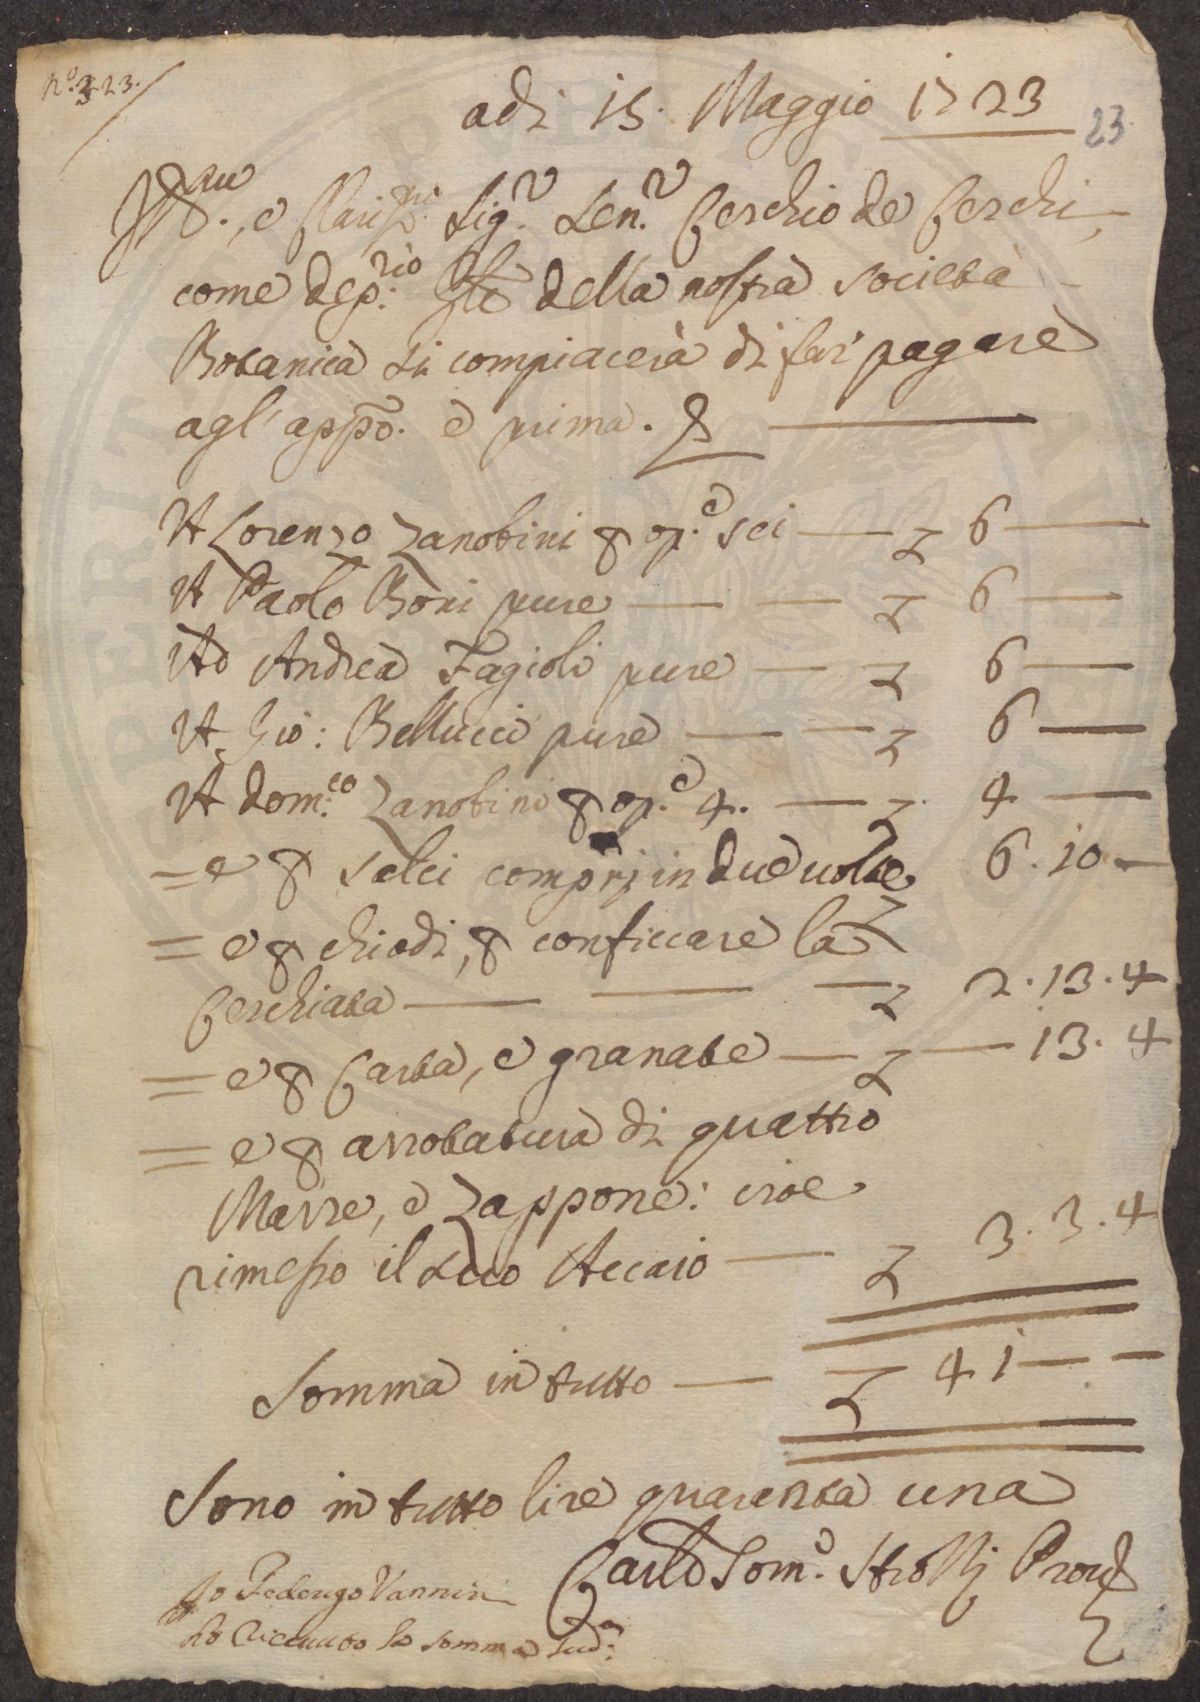 N.º 323.
adi 15. Maggio 1723
23.
Ill.mo, e Clariss.mo Sig.r Sen.r Cerchio de Cerchi
come dep.rio della nostra società
Botanica si compiacerà di far pagare
agl'appo. e prima.
A Lorenzo Zanobini p op.e sei — £ 6 —
A Paolo Boni pure — — £ 6 —
Ad Andrea Fagioli pure — £ 6 —
A Gio: Bellucci pure — — £ 6 —
A dom.co Zanobini p op.e 4. — £ 4 —
= e p selci comprj in due volte £ 6.10 —
= e p chiodi, p conficcare la
Cerchiata — — — £ 2.13.4
= e p Carta, e granate — £ — 13.4
= e p arrotatura di quattro
Marre, e Zappone: cioe
rimesso il suo Accaio — £ 3.3.4
Somma in tutto — £ 41 — —
Sono in tutto lire quaranta una
Carlo Tom.o Strozzj Prov.
Io Federigo Vannini
hò riceuuto la somma sud.a